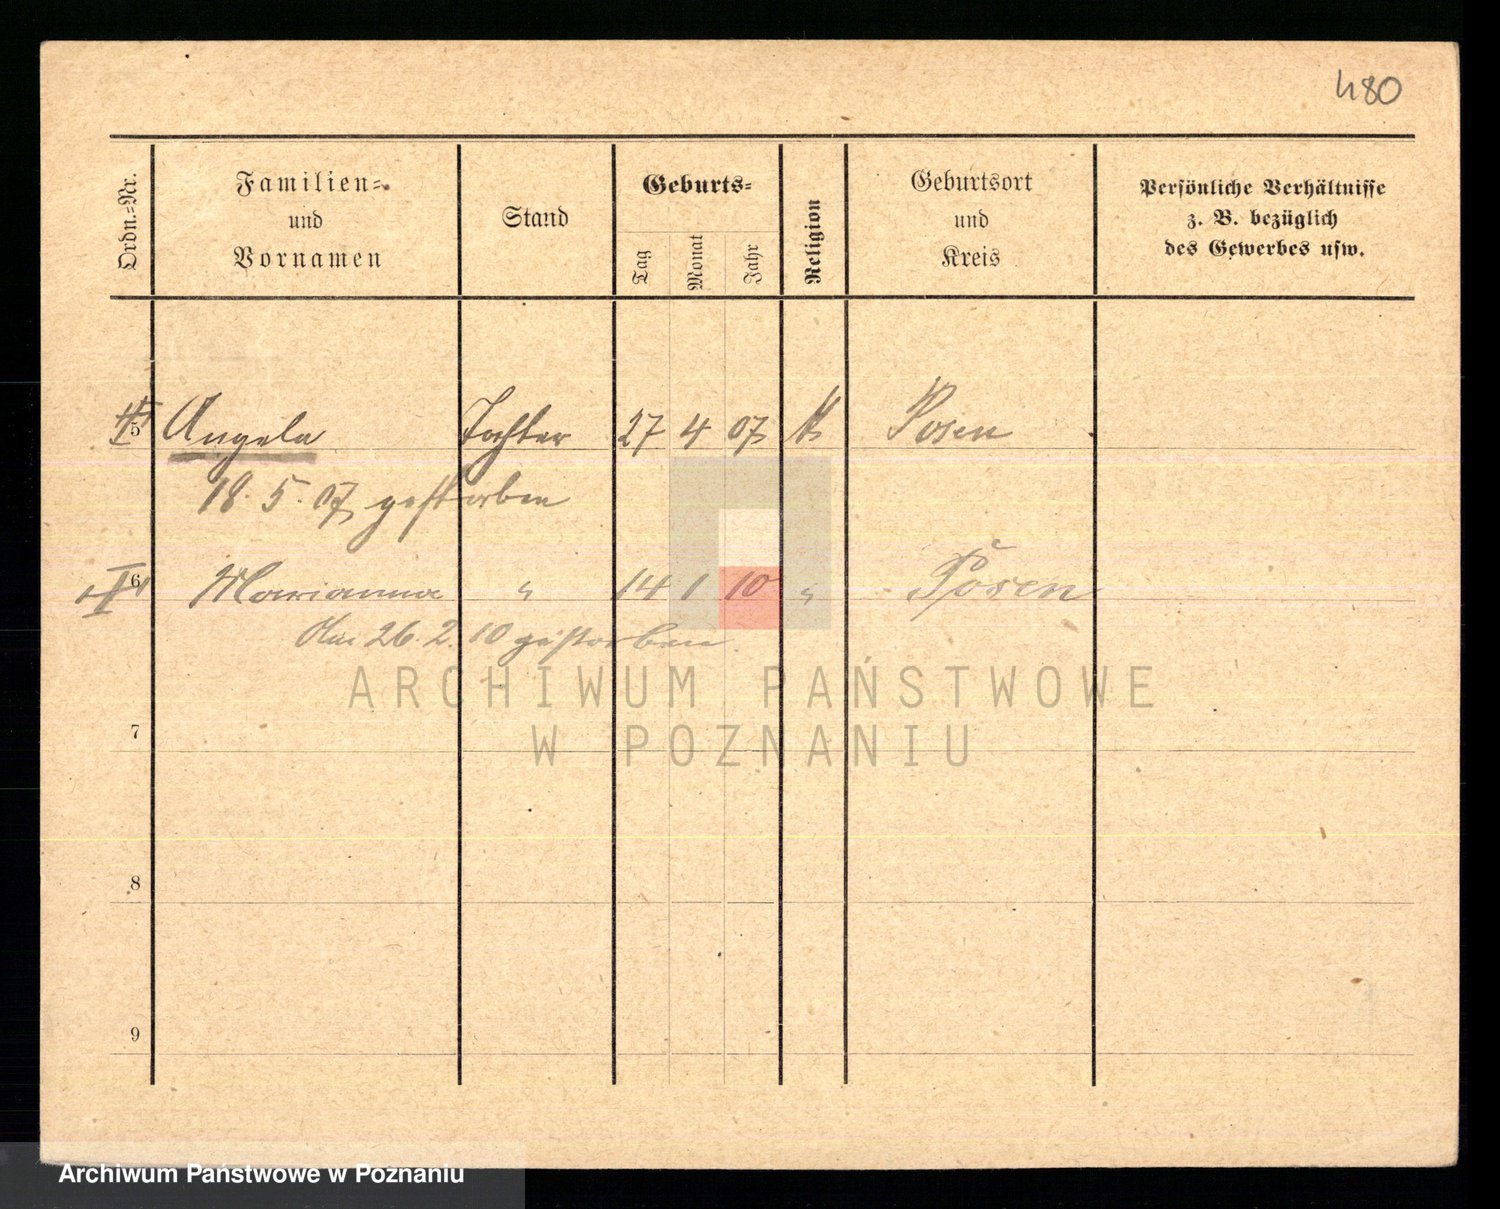 480
Ordn.-Nr.
Familien-
und
Vornamen
Stand
Geburts-
Tag
Monat
Jahr
Religion
Geburtsort
und
Kreis
Persönliche Verhältnisse
z. B. bezüglich
des Gewerbes usw.
5 Angela Tochter 27 4 07 k Posen
18. 5. 07 gestorben
6 Marianna " 14 1 10 " Posen
Am 26. 2. 10 gestorben.
ARCHIWUM PAŃSTWOWE
W POZNANIU
7
8
9
Archiwum Państwowe w Poznaniu